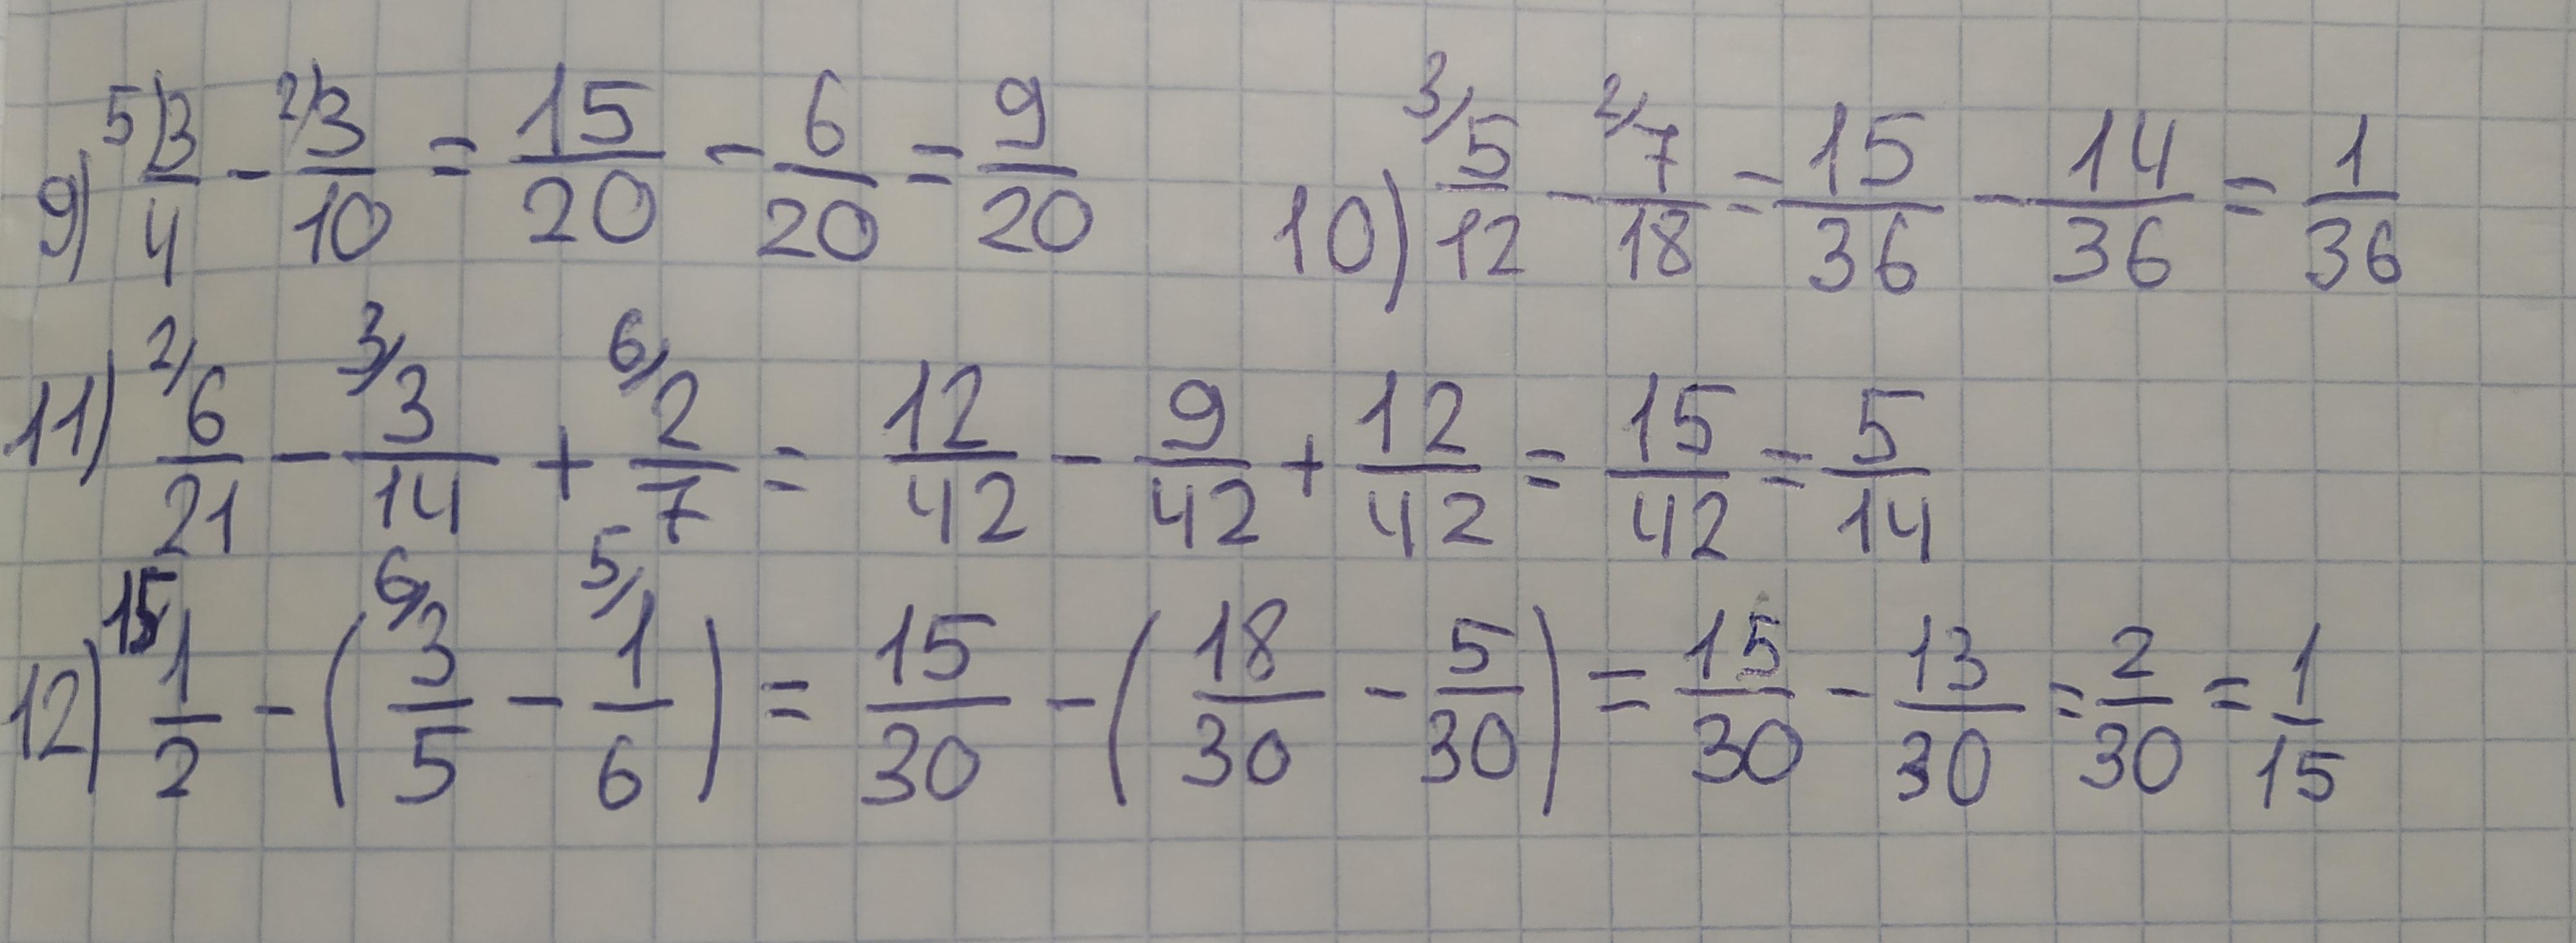 9) 5/3/4 - 2/3/10 = 15/20 - 6/20 = 9/20
10) 3/5/12 - 2/7/18 = 15/36 - 14/36 = 1/36
11) 2/6/21 - 3/3/14 + 6/2/7 = 12/42 - 9/42 + 12/42 = 15/42 = 5/14
12) 15/1/2 - (6/3/5 - 5/1/6) = 15/30 - (18/30 - 5/30) = 15/30 - 13/30 = 2/30 = 1/15